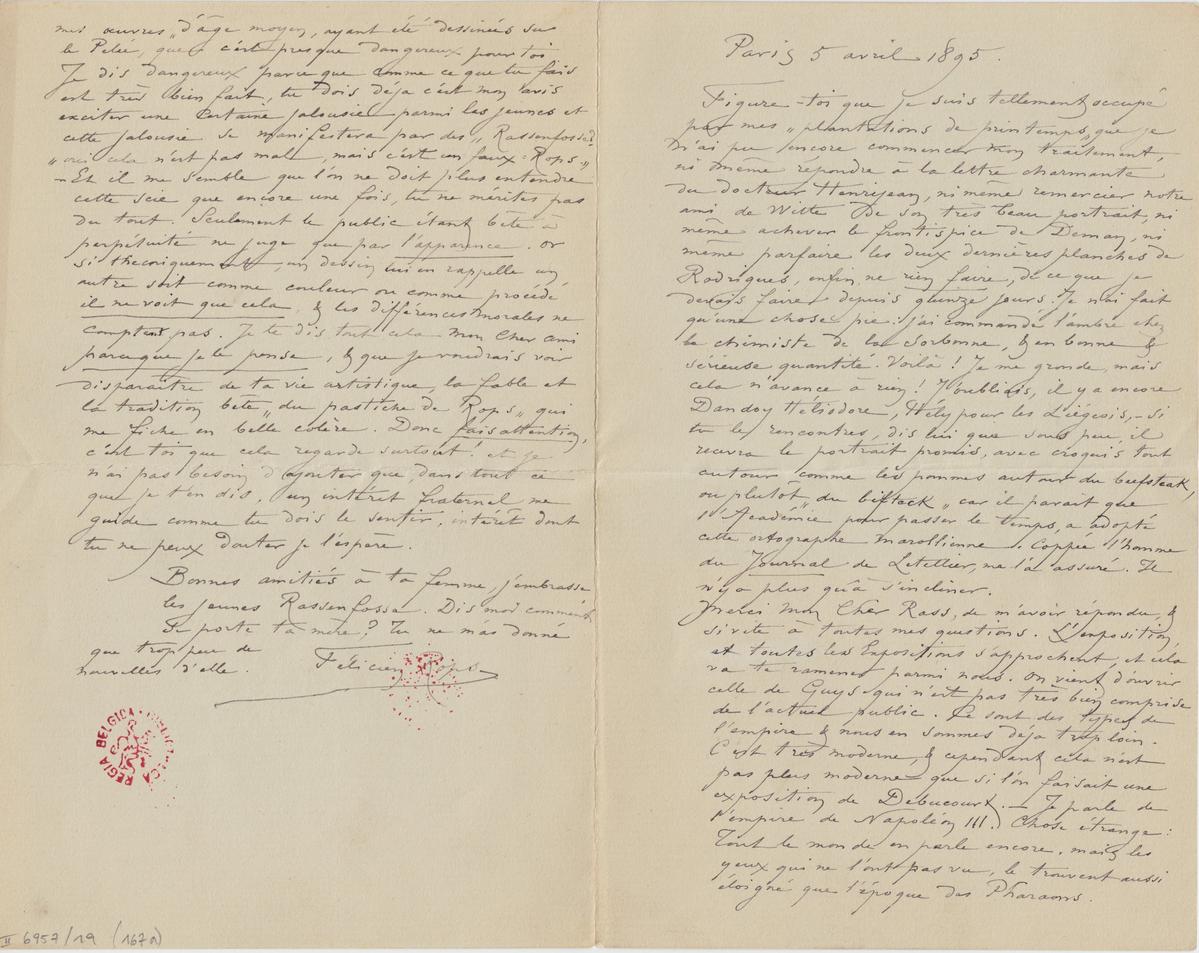 Paris 5 avril 1895.
Figure-toi que je suis tellement occupé
par mes „plantations de printemps„ que je
n'ai pu encore commencer mon traitement,
ni même répondre à la lettre charmante
du docteur Henrijean, ni même remercier notre
ami de Witte de son très beau portrait, ni
même achever le frontispice de Deman, ni
même parfaire les deux dernières planches de
Rodrigues, enfin ne rien faire, de ce que je
devais faire depuis quinze jours. Je n'ai fait
qu'une chose pie: j'ai commandé l'ambre chez
le chimiste de la Sorbonne, & en bonne &
sérieuse quantité. Voilà! Je me gronde, mais
cela n'avance à rien! J'oubliais, il y a encore
Dandoy Héliodore, Hély pour les Liégeois, - si
tu le rencontres, dis lui que sous peu, il
recevra le portrait promis, avec croquis tout
autour comme les pommes autour du beefsteak,
ou plutôt „du biftack„ car il parait que
l'Académie pour passer le temps, a adopté
cette ortographe marollienne. Coppée l'homme
du Journal de Letellier, me l'a assuré. Il
n'y a plus qu'à s'incliner.
Merci Mon Cher Rass, de m'avoir répondu, &
si vite à toutes mes questions. L'exposition,
et toutes les Expositions s'approchent, et cela
va te ramener parmi nous. On vient d'ouvrir
celle de Guys qui n'est pas très bien comprise
de l'actuel public. Ce sont des types de
l'empire & nous en sommes déja trop loin.
C'est très moderne, & cependant cela n'est
pas plus moderne que si l'on faisait une
exposition de Debucourt. — Je parle de
l'empire de Napoléon III.) Chose étrange:
Tout le monde en parle encore, mais les
yeux qui ne l'ont pas vu, le trouvent aussi
éloigné que l'époque des Pharaons.
mes œuvres „d'âge moyen, ayant été dessinées sur
le Pelée, que c'est presque dangereux pour toi
Je dis dangereux parce que comme ce que tu fais
est très bien fait, tu dois déja c'est mon avis
exciter une certaine jalousie parmi les jeunes et
cette jalousie se manifestera par des „Rassenfosse?
„oui cela n'est pas mal, mais c'est un faux-Rops„
— Et il me semble que l'on ne doit plus entendre
cette scie que encore une fois, tu ne mérites pas
du tout. Seulement le public étant bête à
perpétuité ne juge que par l'apparence. or
si théoriquement, un dessin lui en rappelle un
autre soit comme couleur ou comme procédé
il ne voit que cela, & les différences morales ne
comptent pas. Je te dis tout cela mon cher ami
parceque je le pense, & que je voudrais voir
disparaître de ta vie artistique, la fable et
la tradition bête „du pastiche de Rops„ qui
me fiche en belle colère. Donc fais attention,
c'est toi que cela regarde surtout! et je
n'ai pas besoin d'ajouter que dans tout ce
que je t'en dis, un intérêt fraternel me
guide comme tu dois le sentir, intérêt dont
tu ne peux douter je l'espère.
Bonnes amitiés à ta femme, j'embrasse
les jeunes Rassenfosse. Dis moi comment
se porte ta mère? Tu ne m'as donné
que trop peu de
nouvelles d'elle.
Félicien Rops
BELGICA REGIA
II 6957/19 (167a)